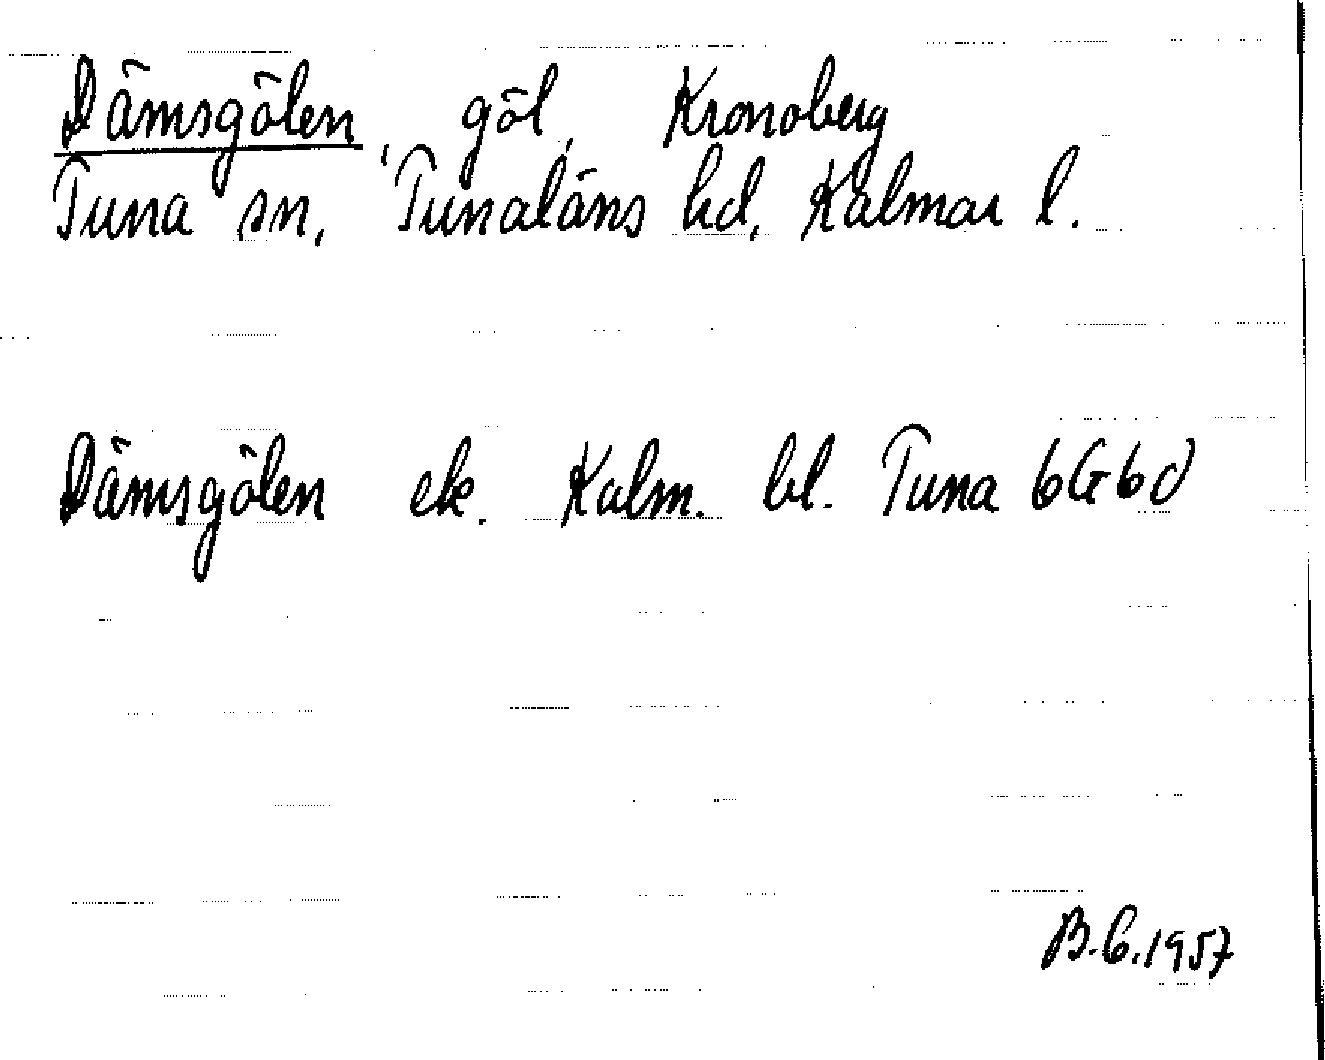 Dämsgölen, göl, Kronoberg
Tuna sn, Tunaläns hd, Kalmar l.
Dämsgölen ek. Kalm. bl. Tuna 6G6d
B.C.1957